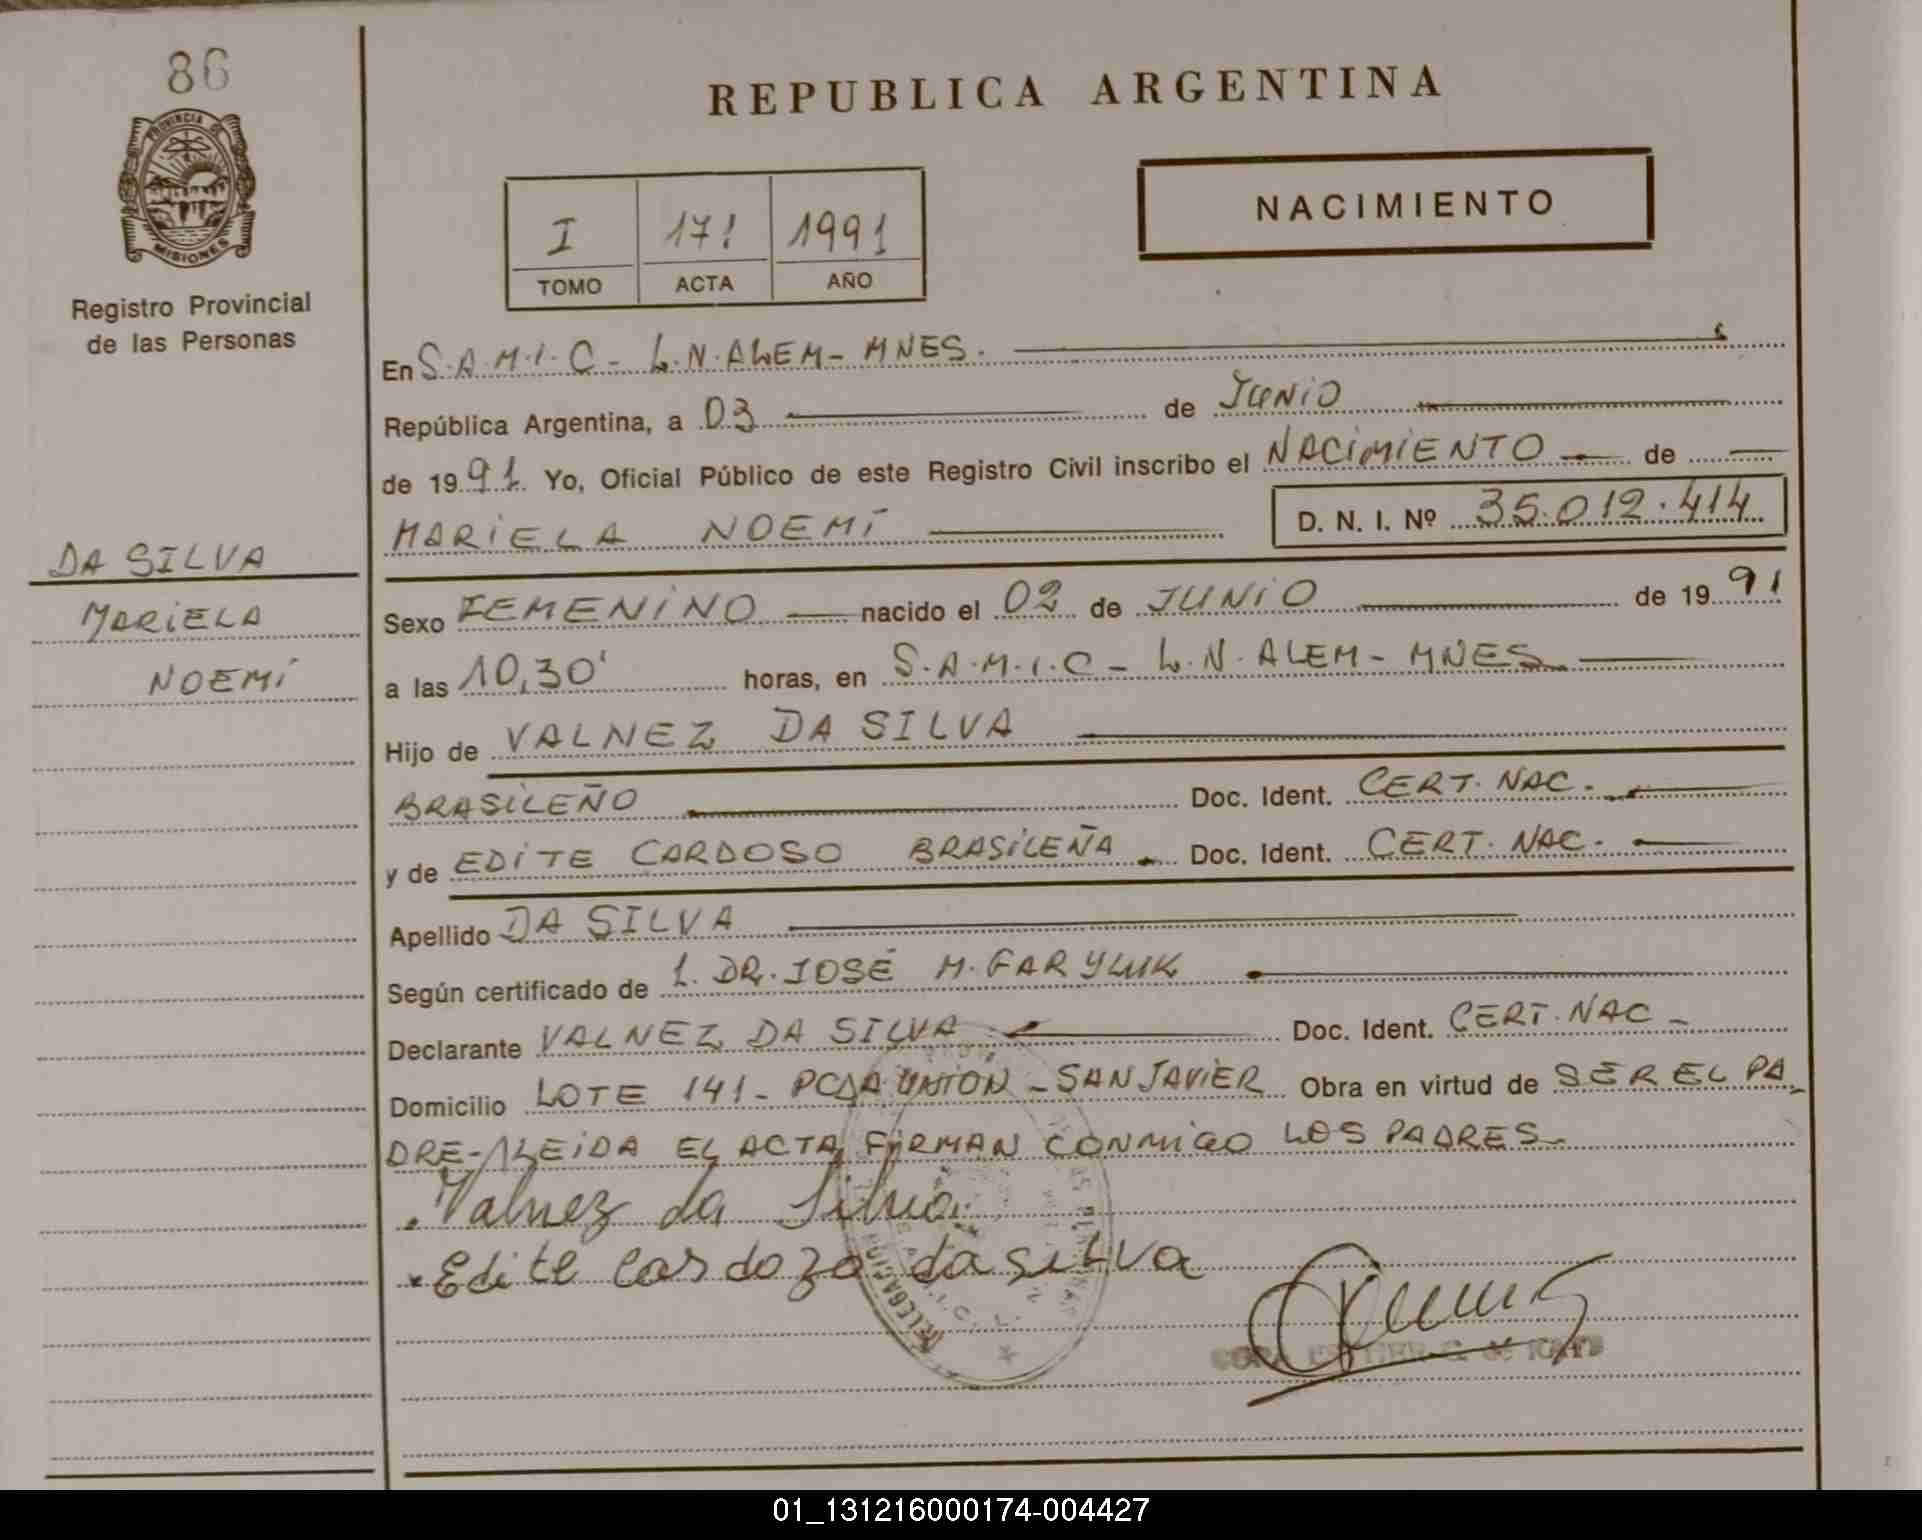 86
PROVINCIA DE
MISIONES
Registro Provincial
de las Personas
DA SILVA
MARIELA
NOEMÍ
REPUBLICA ARGENTINA
I 171 1991
TOMO ACTA AÑO
NACIMIENTO
En S.A.M.I.C - L.N.ALEM - MNES.
República Argentina, a 03 de JUNIO
de 1991. Yo, Oficial Público de este Registro Civil inscribo el NACIMIENTO de
MARIELA NOEMÍ D. N. I. Nº 35.012.414
Sexo FEMENINO nacido el 02 de JUNIO de 1991
a las 10,30' horas, en S.A.M.I.C - L.N. ALEM - MNES
Hijo de VALNEZ DA SILVA
BRASILEÑO Doc. Ident. CERT. NAC.
y de EDITE CARDOSO BRASILEÑA. Doc. Ident. CERT. NAC.
Apellido DA SILVA
Según certificado de 1. DR. JOSÉ M. FARYLUK
Declarante VALNEZ DA SILVA Doc. Ident. CERT. NAC -
Domicilio LOTE 141 - PCDA UNION - SAN JAVIER Obra en virtud de SER EL PA-
DRE - LEIDA EL ACTA FIRMAN CONMIGO LOS PADRES -
Valnez da Silva
Edite Cardozo da Silva
DELEGACION
01_131216000174-004427